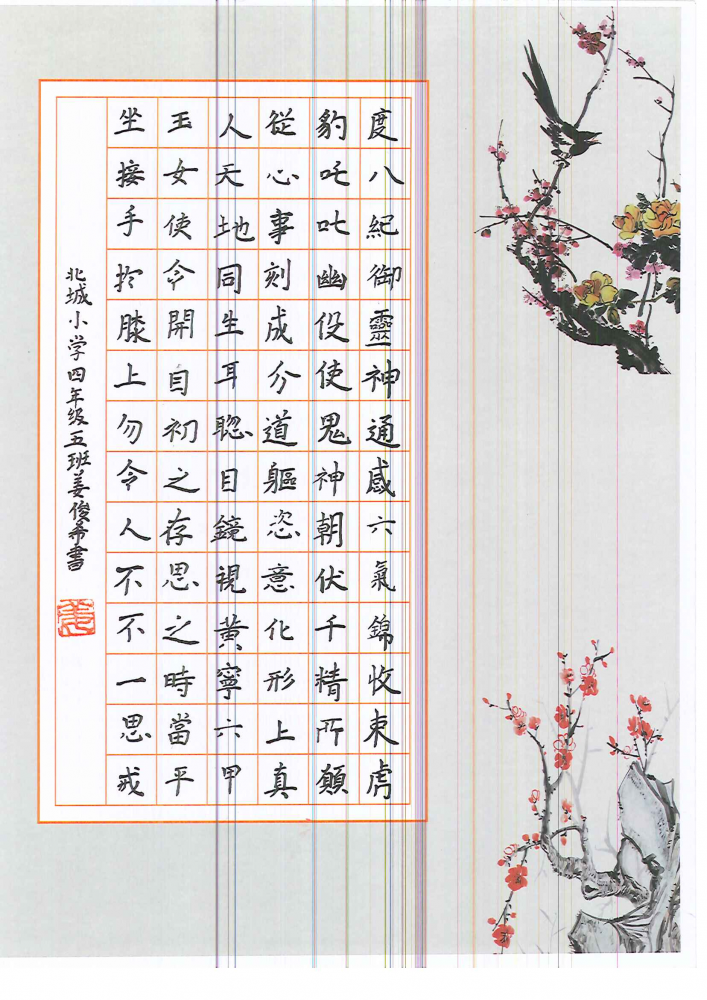 度八紀御靈神通感六氣錦收束虏
豹吒叱幽役使鬼神朝伏千精所願
從心事刻成分道軀恣意化形上真
人天地同生耳聪目鏡視黃寧六甲
玉女使令開自初之存思之時當平
坐接手於膝上勿令人不不一思戒
北城小学四年级五班姜俊希書
姜